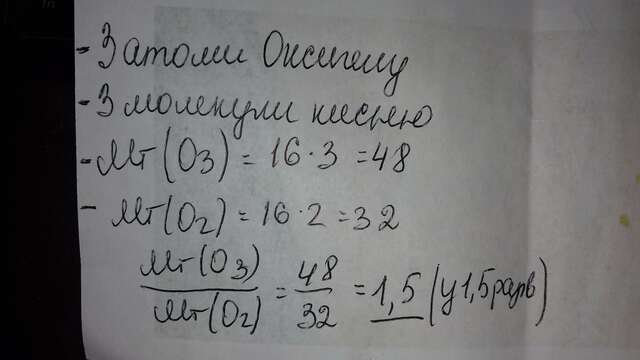 - 3 атоми Оксигену
- 3 молекули кисню
- Mr(O3) = 16 · 3 = 48
- Mr(O2) = 16 · 2 = 32
Mr(O3)/Mr(O2) = 48/32 = 1,5 (у 1,5 разів)